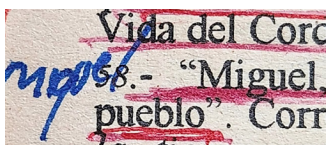 Vida del Corc
58.- “Miguel,
pueblo”. Corr